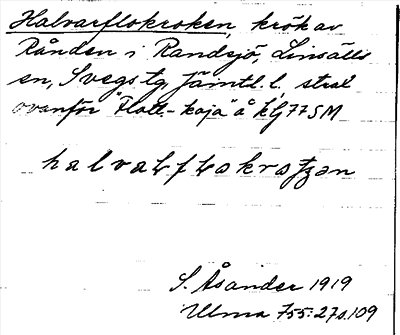 Halvarflokroken, krök av
Rånden i Randsjö, Linsälls
sn, Svegs tg, Jämtl. l, strax
ovanför "Flott-koja" å kG 77 SM
S. Åsander 1919
Ulma 755: 27 s. 109